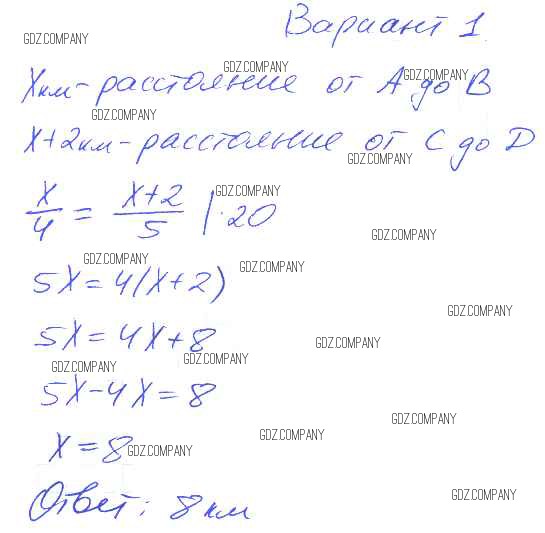 Вариант 1.
GDZ.COMPANY
GDZ.COMPANY
GDZ.COMPANY
X км - расстояние от А до В
GDZ.COMPANY
X+2 км - расстояние от С до D
GDZ.COMPANY
GDZ.COMPANY
x/4 = (x+2)/5 | · 20
GDZ.COMPANY
GDZ.COMPANY
GDZ.COMPANY
5X = 4(X+2)
GDZ.COMPANY
5X = 4X+8
GDZ.COMPANY
GDZ.COMPANY
GDZ.COMPANY
5X-4X=8
GDZ.COMPANY
GDZ.COMPANY
X = 8
GDZ.COMPANY
Ответ: 8 км
GDZ.COMPANY